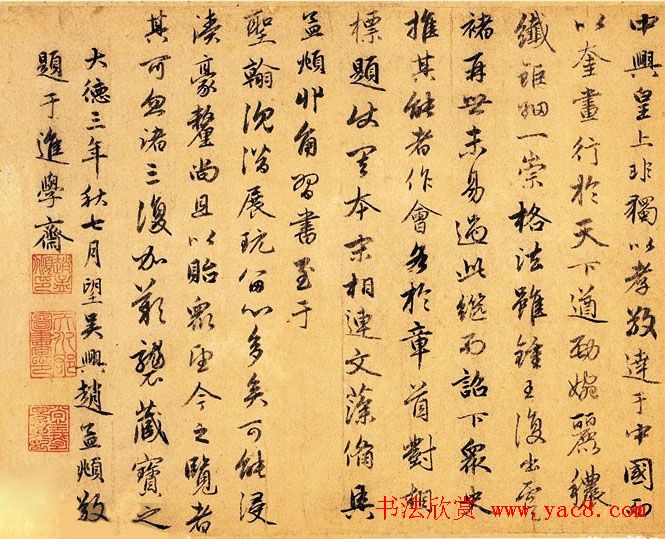 中興皇上非獨以孝敬達于中國而
以奎畫行於天下遒勁婉麗穠
纖鉅細一崇格法雖鍾王復出
褚再世未易過此繼而詔下眾史
推其能者作會各於章首對
標題本末相連文藻備具
孟頫丱角習書至于
聖翰沉潛展玩留心多矣可能浸
漬豪釐尚且以貽眾今之覽者
其可忽諸三復加歎襲藏寶之
大德三年秋七月望吳興趙孟頫敬
題于進學齋
书法欣赏 www.yac8.com